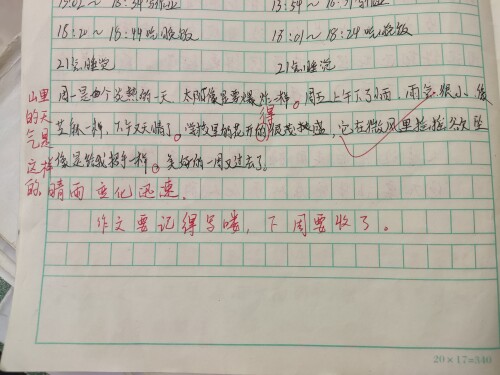 15:02~18:34写作业 13:54~16:31写作业
18:20~18:44吃晚饭 18:01~18:24吃晚饭
21点睡觉 21点睡觉
周一是个炎热的一天 太阳像是要爆炸一样。周五上午下了雨,雨气很小,像
芝麻一样,下午又天晴了。学校里的花开的很茂盛,它在微风里摇摇欲坠
像是给我招手一样。美好的一周又过去了。
得
山里的天气是这样的,晴雨变化迅速。
作文要记得写喽,下周要收了。
20×17=340